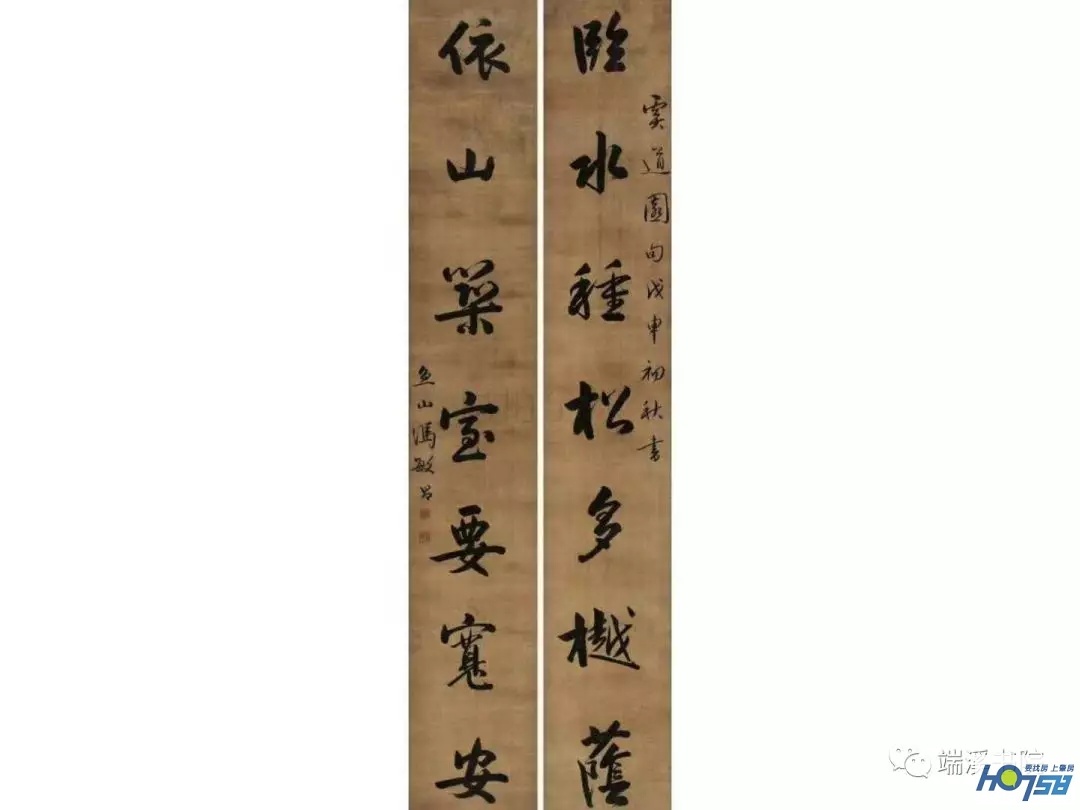 臨水種松多樾蔭
虞道園句戊申初秋書
依山築室要寬安
魚山馮敏昌
端溪书院
要找房 上肇房
HO758